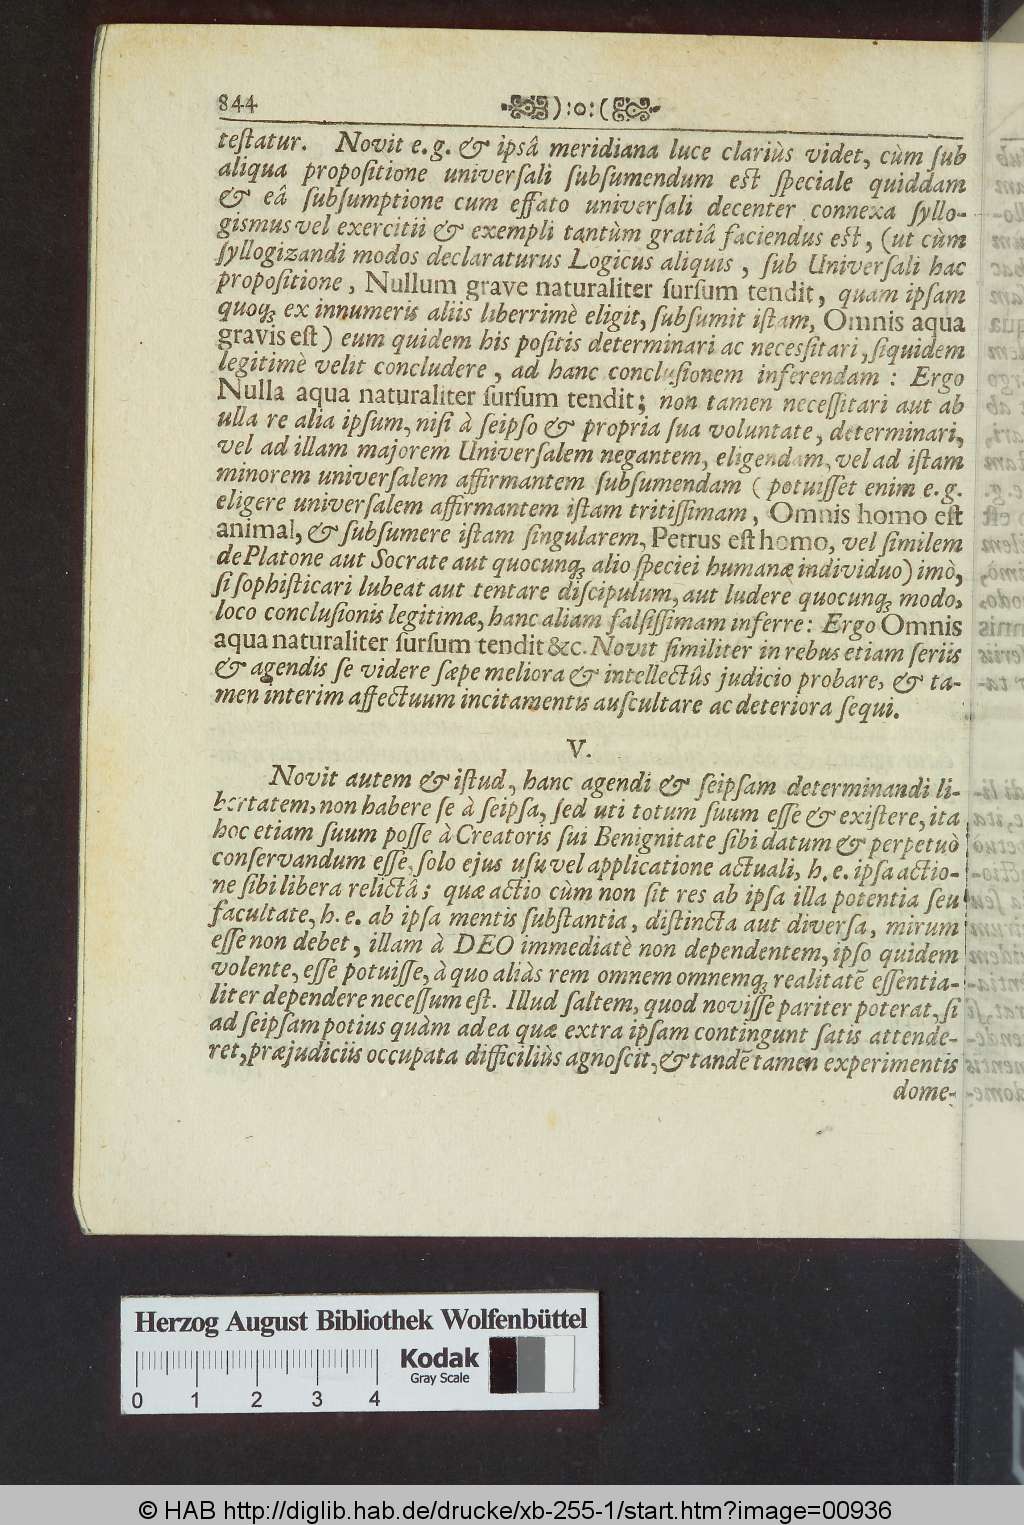 844 ):o:(
teſtatur. Novit e.g. & ipsâ meridiana luce clariùs videt, cùm ſub
aliqua propoſitione univerſali ſubſumendum eſt ſpeciale quiddam
& eâ ſubſumptione cum effato univerſali decenter connexa ſyllo-
gismus vel exercitii & exempli tantùm gratiâ faciendus eſt, (ut cùm
ſyllogizandi modos declaraturus Logicus aliquis, ſub Univerſali hac
propoſitione, Nullum grave naturaliter ſurſum tendit, quam ipſam
quoq́; ex innumeris aliis liberrimè eligit, ſubſumit iſtam, Omnis aqua
gravis eſt) eum quidem his poſitis determinari ac neceſſitari, ſiquidem
legitimè velit concludere, ad hanc concluſionem inferendam: Ergo
Nulla aqua naturaliter ſurſum tendit; non tamen neceſſitari aut ab
ulla re alia ipſum, niſi à ſeipſo & propria ſua voluntate, determinari,
vel ad illam majorem Univerſalem negantem, eligendam, vel ad iſtam
minorem univerſalem affirmantem ſubſumendam (potuiſſet enim e.g.
eligere univerſalem affirmantem iſtam tritiſſimam, Omnis homo eſt
animal, & ſubſumere iſtam ſingularem, Petrus eſt homo, vel ſimilem
de Platone aut Socrate aut quocunq́; alio ſpeciei humanæ individuo) imò,
ſi ſophiſticari lubeat aut tentare diſcipulum, aut ludere quocunq́; modo,
loco concluſionis legitimæ, hanc aliam falſiſſimam inferre: Ergo Omnis
aqua naturaliter ſurſum tendit &c. Novit ſimiliter in rebus etiam ſeriis
& agendis ſe videre ſæpe meliora & intellectûs judicio probare, & ta-
men interim affectuum incitamentis auſcultare ac deteriora ſequi.
V.
Novit autem & iſtud, hanc agendi & ſeipſam determinandi li-
bertatem, non habere ſe à ſeipſa, ſed uti totum ſuum eſſe & exiſtere, ita
hoc etiam ſuum poſſe à Creatoris ſui Benignitate ſibi datum & perpetuò
conſervandum eſſe, ſolo ejus uſu vel applicatione actuali, h.e. ipſa actio-
ne ſibi libera relictâ; quæ actio cùm non ſit res ab ipſa illa potentia ſeu
facultate, h.e. ab ipſa mentis ſubſtantia, diſtincta aut diverſa, mirum
eſſe non debet, illam à DEO immediatè non dependentem, ipſo quidem
volente, eſſe potuiſſe, à quo aliàs rem omnem omnemq́; realitatē eſſentia-
liter dependere neceſſum eſt. Illud ſaltem, quod noviſſe pariter poterat, ſi
ad ſeipſam potius quàm ad ea quæ extra ipſam contingunt ſatis attende-
ret, præjudiciis occupata difficiliùs agnoſcit, & tandē tamen experimentis
dome-
Herzog August Bibliothek Wolfenbüttel
Kodak
Gray Scale
0 1 2 3 4
© HAB http://diglib.hab.de/drucke/xb-255-1/start.htm?image=00936